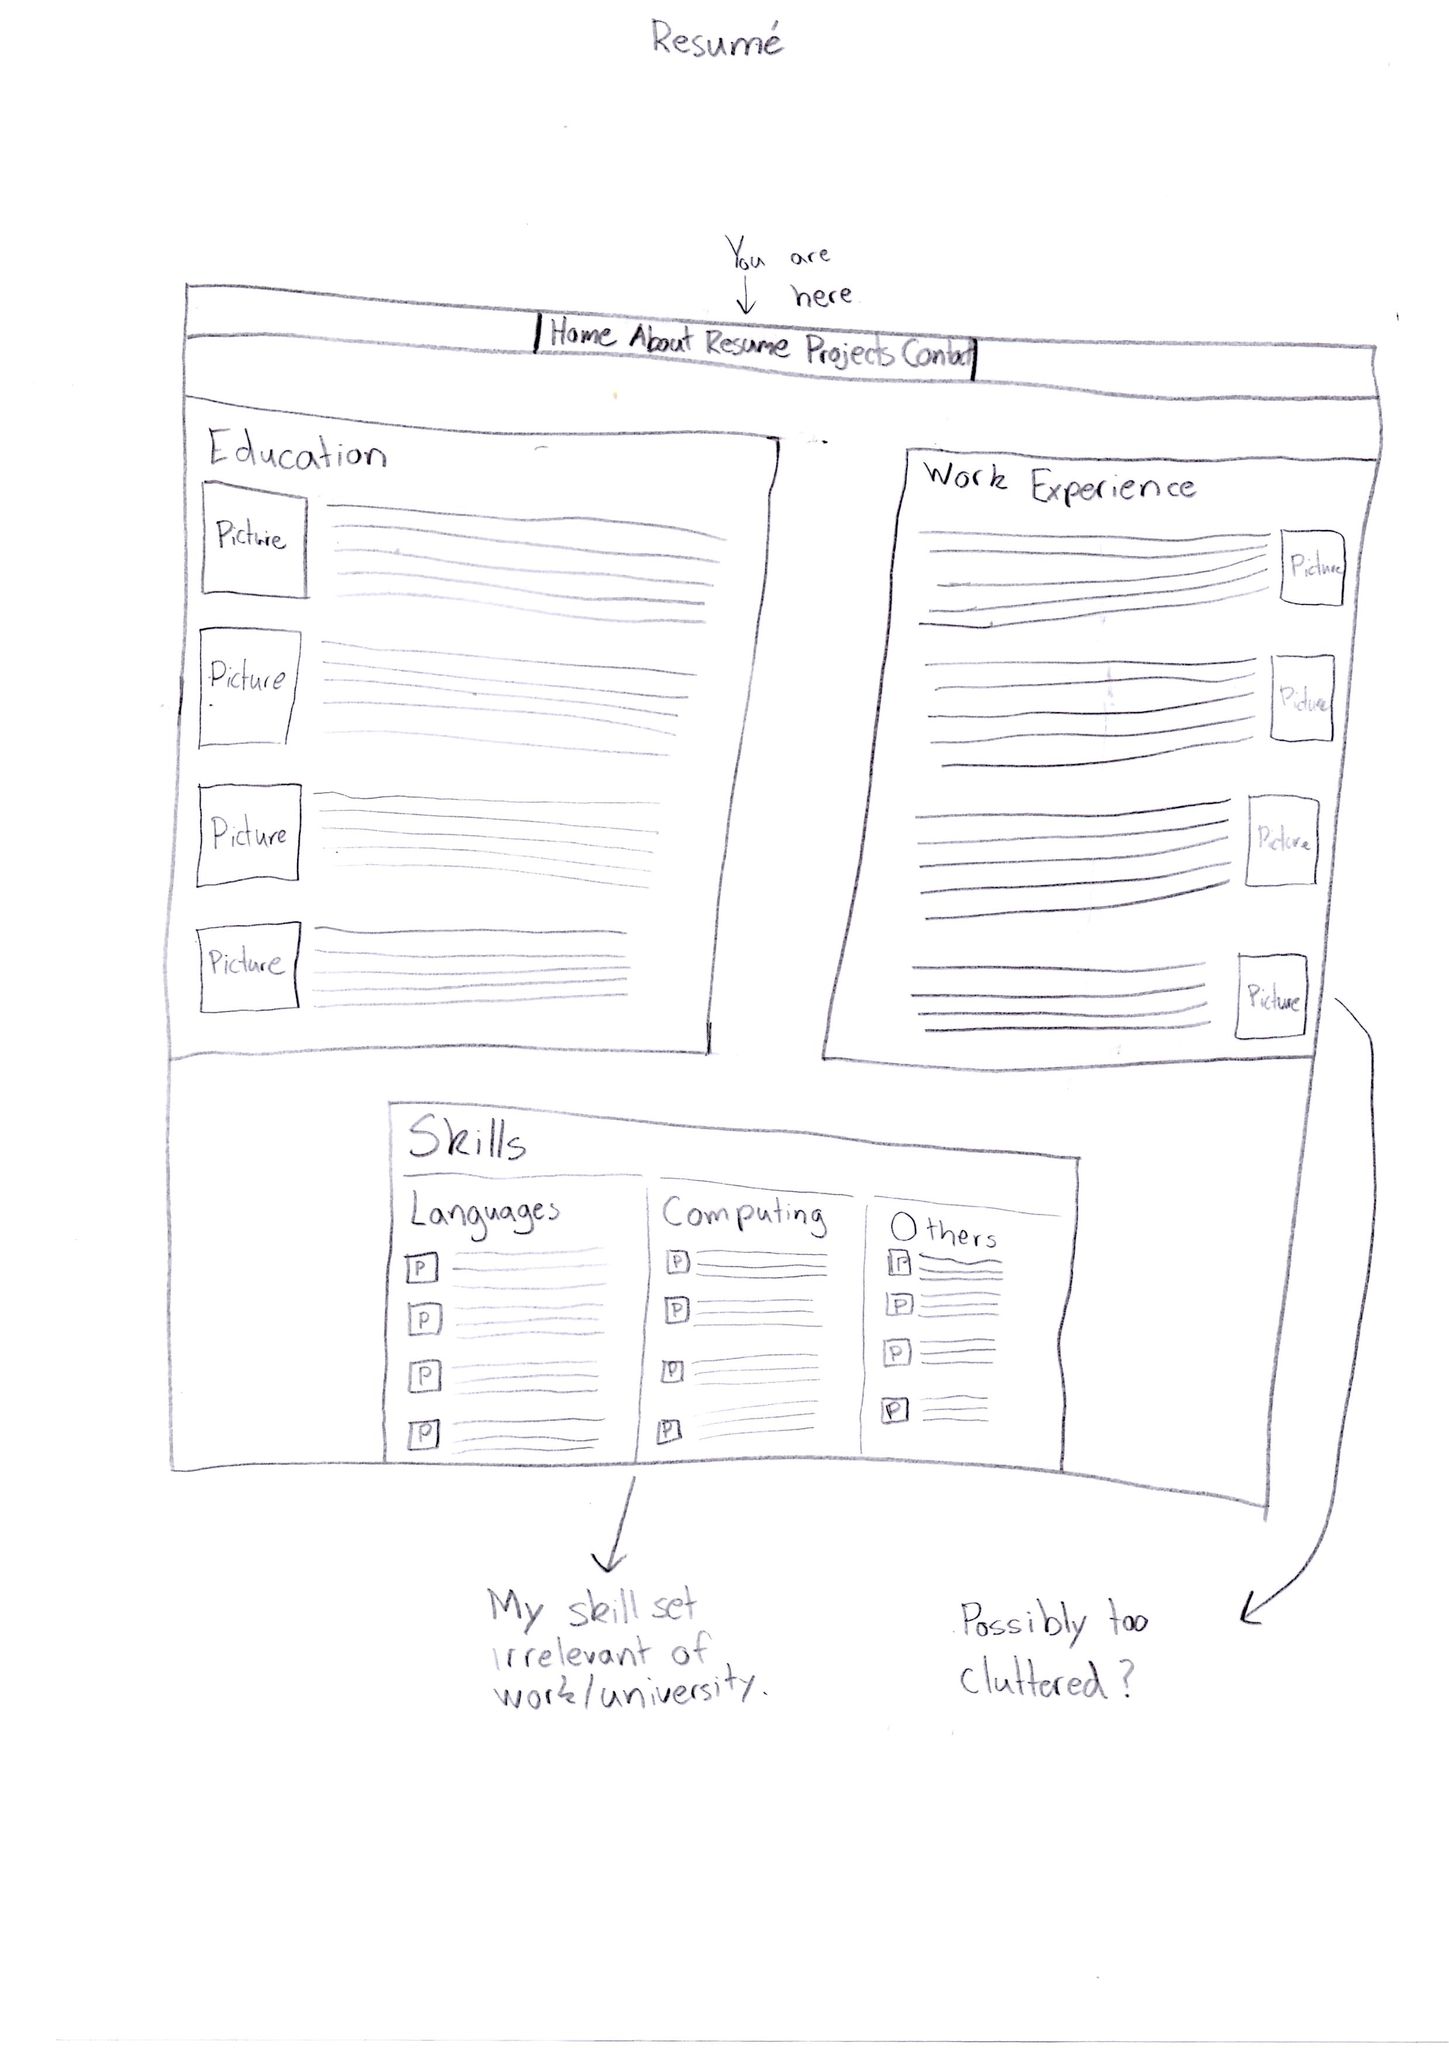 Resumé
You are
here
Home About Resume Projects Contact
Education
Picture
Picture
Picture
Picture
Work Experience
Picture
Picture
Picture
Picture
Skills
Languages
P
P
P
P
Computing
P
P
P
P
Others
P
P
P
P
My skill set
irrelevant of
work/university.
Possibly too
cluttered?